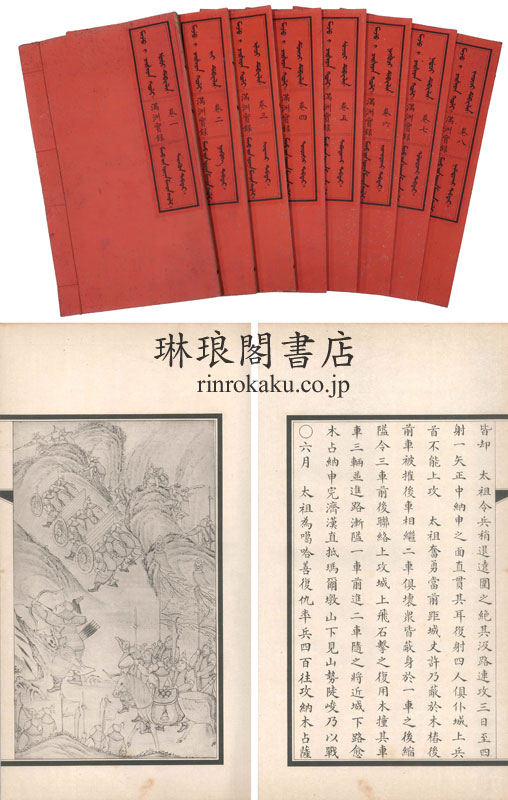 滿洲實錄 卷一
滿洲實錄 卷二
滿洲實錄 卷三
滿洲實錄 卷四
滿洲實錄 卷五
滿洲實錄 卷六
滿洲實錄 卷七
滿洲實錄 卷八
琳琅閣書店
rinrokaku.co.jp
○六月 太祖為噶哈善復仇率兵四百往攻納木占薩
木占納申完濟漢直抵瑪爾墩山下見山勢陡峻乃以戰
車三輛並進路漸隘一車前進二車隨之將近城下路愈
隘令三車前後聯絡上攻城上飛石擊之復用木撞其車
前車被摧後車相繼二車俱壞衆皆蔽身於一車之後縮
首不能上攻 太祖奮勇當前距城丈許乃蔽於木樁後
射一矢正中納申之面直貫其耳復射四人俱仆城上兵
皆却 太祖令兵稍退遠圍之絕其汲路連攻三日至四